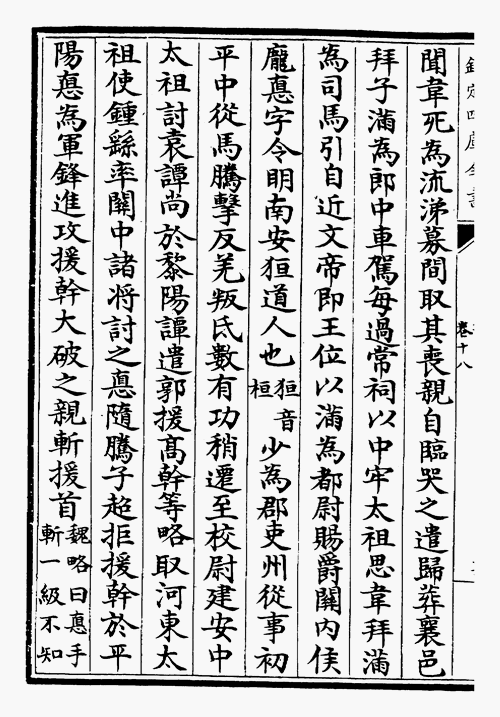 欽定四庫全書
卷十八
聞韋死為流涕募間取其喪親自臨哭之遣歸葬襄邑
拜子滿為郎中車駕每過常祠以中牢太祖思韋拜滿
為司馬引自近文帝即王位以滿為都尉賜爵關內侯
龐悳字令明南安狟道人也狟音桓少為郡吏州從事初
平中從馬騰擊反羌叛氐數有功稍遷至校尉建安中
太祖討袁譚尚於黎陽譚遣郭援高幹等略取河東太
祖使鍾繇率關中諸將討之悳隨騰子超拒援幹於平
陽悳為軍鋒進攻援幹大破之親斬援首魏略曰悳手斬一級不知